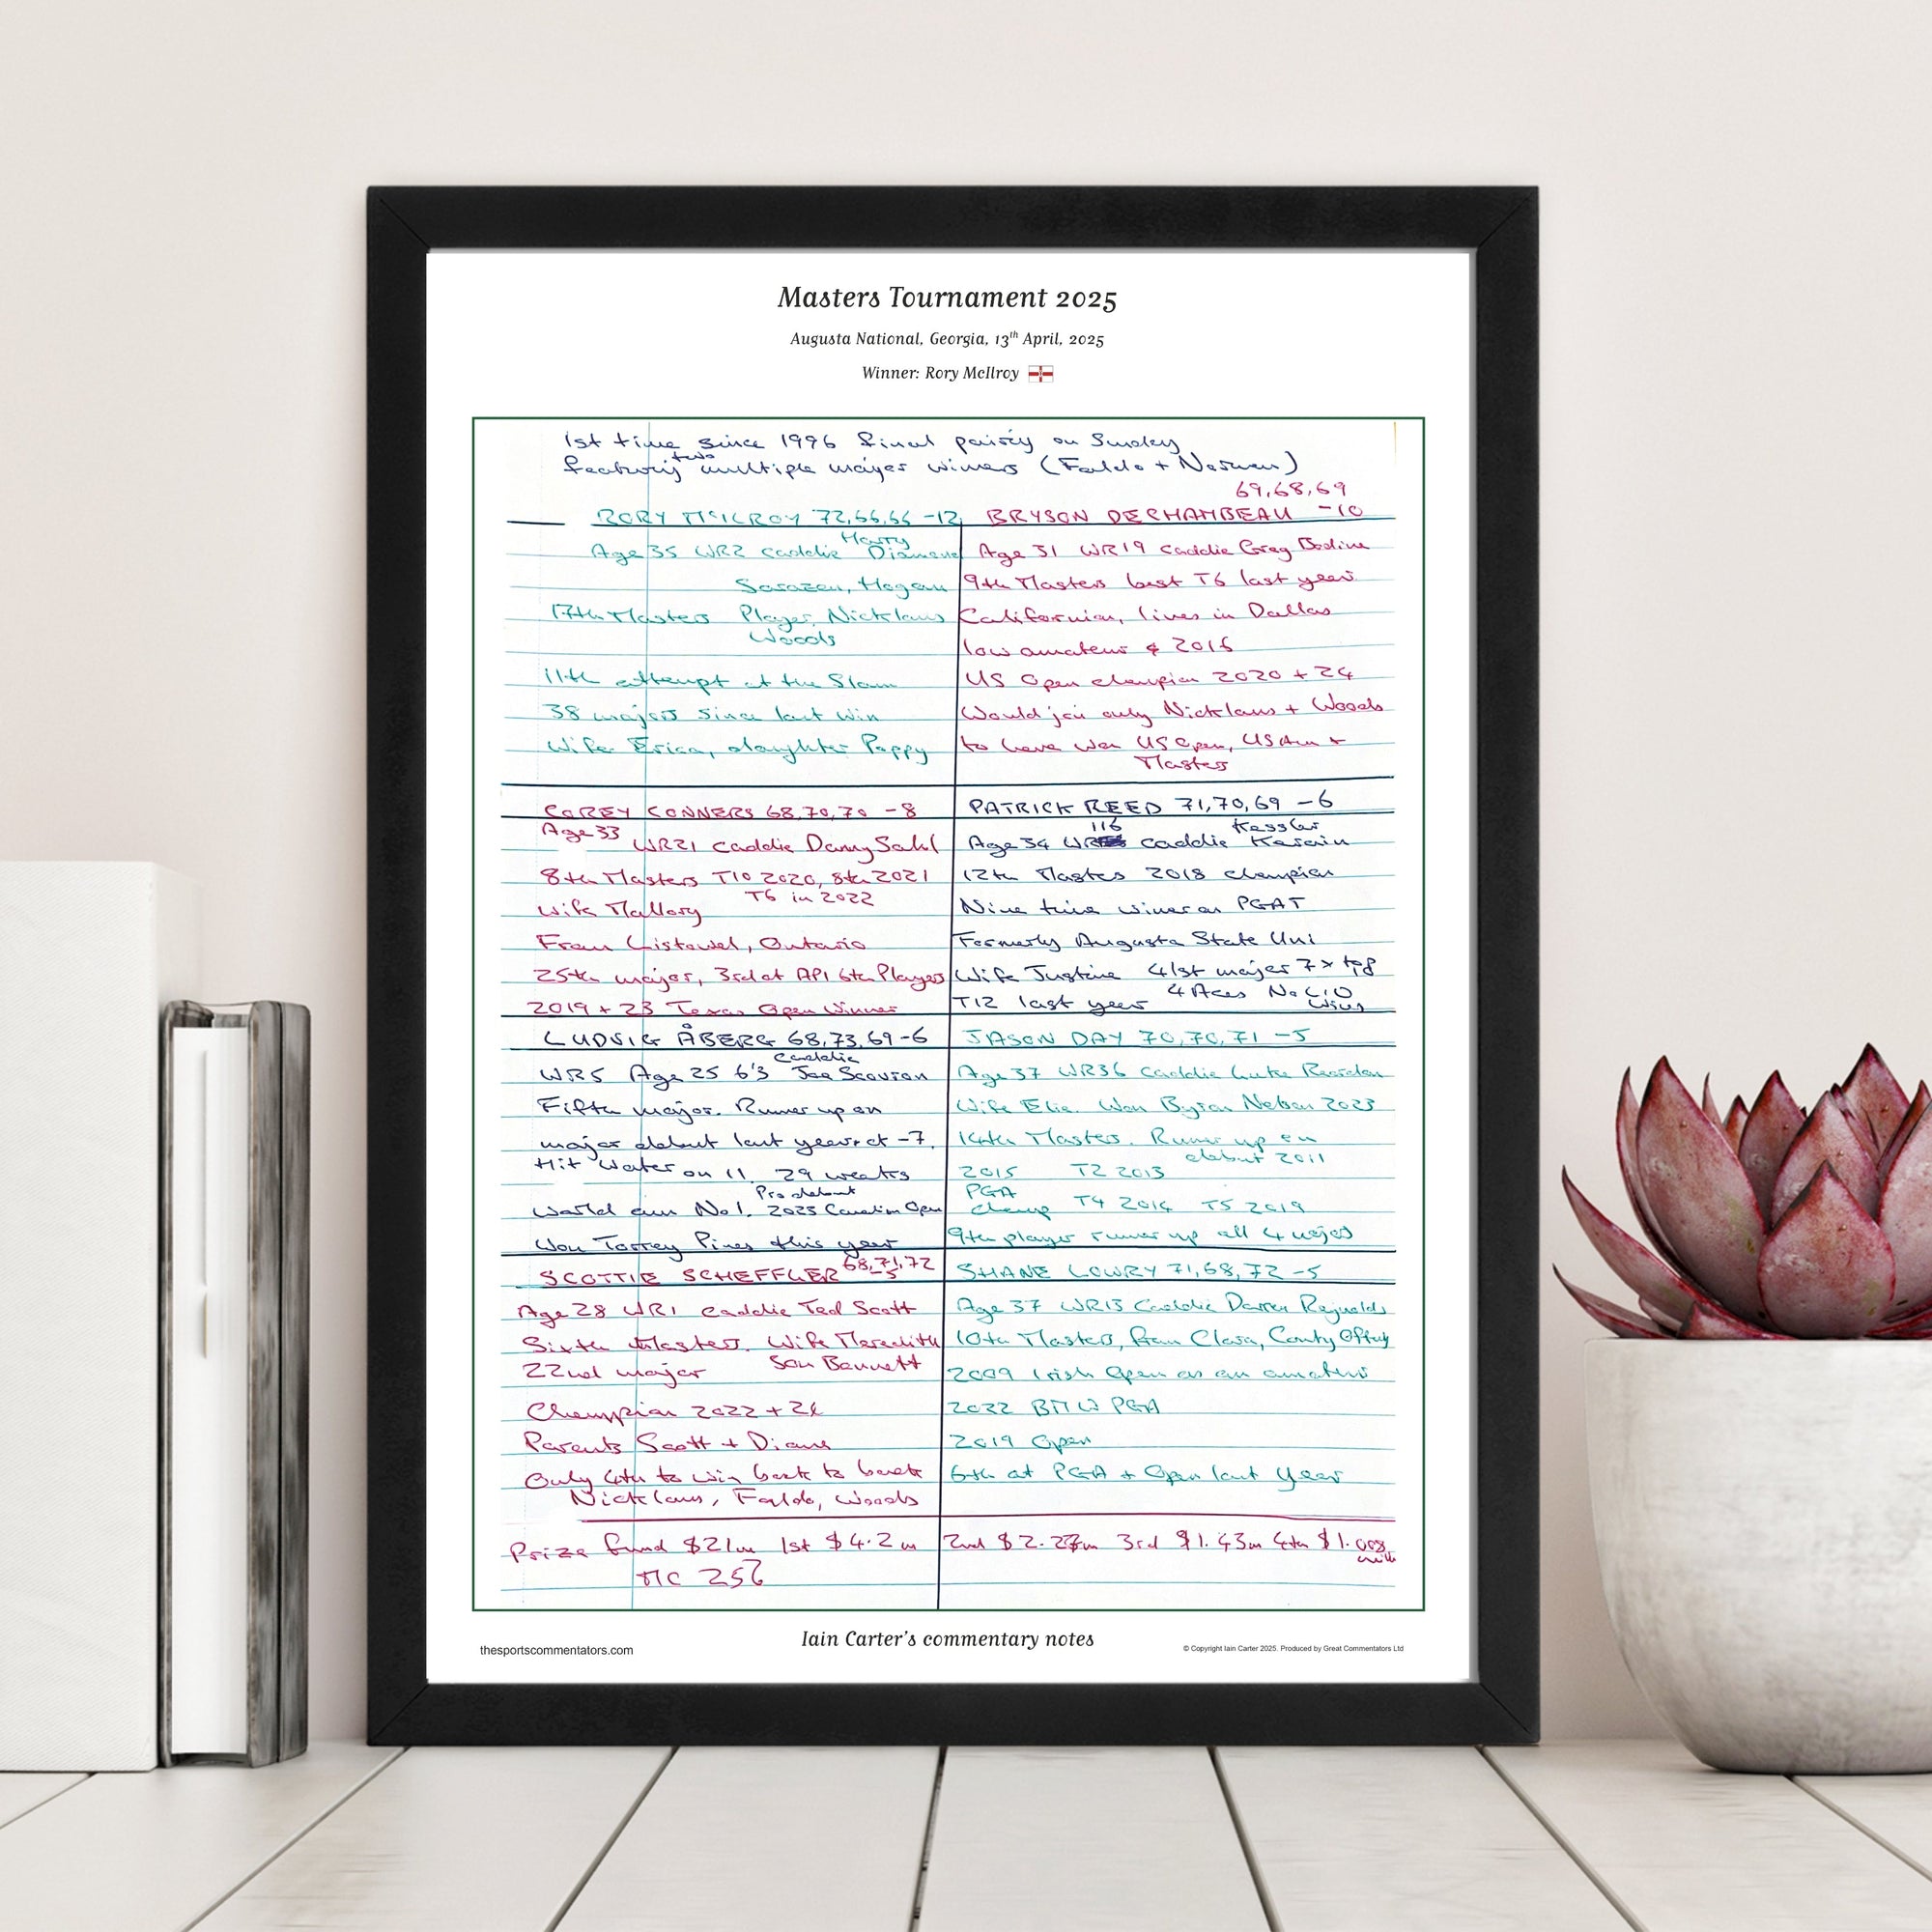 Masters Tournament 2025
Augusta National, Georgia, 13th April, 2025
Winner: Rory McIlroy
1st time since 1996 final pairing on Sunday
featuring two multiple major winners (Faldo + Norman)
69,68,69
RORY McILROY 72,66,66 -12
BRYSON DECHAMBEAU -10
Age 35 WR2 caddie Harry Diamond
Sarazen, Hogan
17th Masters Player, Nicklaus
Woods
11th attempt at the Slam
38 majors since last win
Wife Erica, daughter Poppy
Age 31 WR19 caddie Greg Bodine
9th Masters best T6 last year
Californian, lives in Dallas
low amateur 2016
US Open champion 2020 + 24
Would join only Nicklaus + Woods
to have won US Open, US Am +
Masters
COREY CONNERS 68,70,70 -8
Age 33 WR21 caddie Danny Sahl
8th Masters T10 2020, 8th 2021
T6 in 2022
Wife Mallory
From Listowel, Ontario
25th major, 3rd at API 6th Players
2019 + 23 Texas Open Winner
PATRICK REED 71,70,69 -6
Age 34 WR 116 caddie Kessler Karain
12th Masters 2018 champion
Nine time winner on PGAT
Formerly Augusta State Uni
Wife Justine 41st major 7 x top
T12 last year 4 Aces No LIV
wins
LUDVIG ÅBERG 68,73,69 -6
WR5 Age 25 6'3 caddie Joe Scovron
Fifth major. Runner up on
major debut last year at -7.
Hit water on 11. 29 weeks
World am No1. Pro debut 2023 Canadian Open
Won Torrey Pines this year
JASON DAY 70,70,71 -5
Age 37 WR36 caddie Luke Reardon
Wife Ellie. Won Byron Nelson 2023
14th Masters. Runner up on
debut 2011
2015 T2 2013
PGA
champ T4 2014 T5 2019
9th player runner up all 4 majors
SCOTTIE SCHEFFLER 68,71,72
-5
Age 28 WR1 caddie Ted Scott
Sixth Masters. Wife Meredith
22nd major Son Bennett
Champion 2022 + 24
Parents Scott + Diane
Only 4th to win back to back
Nicklaus, Faldo, Woods
SHANE LOWRY 71,68,72 -5
Age 37 WR13 Caddie Darren Reynolds
10th Masters, from Clara, County Offaly
2009 Irish Open as an amateur
2022 BMW PGA
2019 Open
6th at PGA + Open last Year
Prize fund $21m 1st $4.2m 2nd $2.27m 3rd $1.43m 4th $1.008
mill
MC 256
thesportscommentators.com
Iain Carter's commentary notes
© Copyright Iain Carter 2025. Produced by Great Commentators Ltd